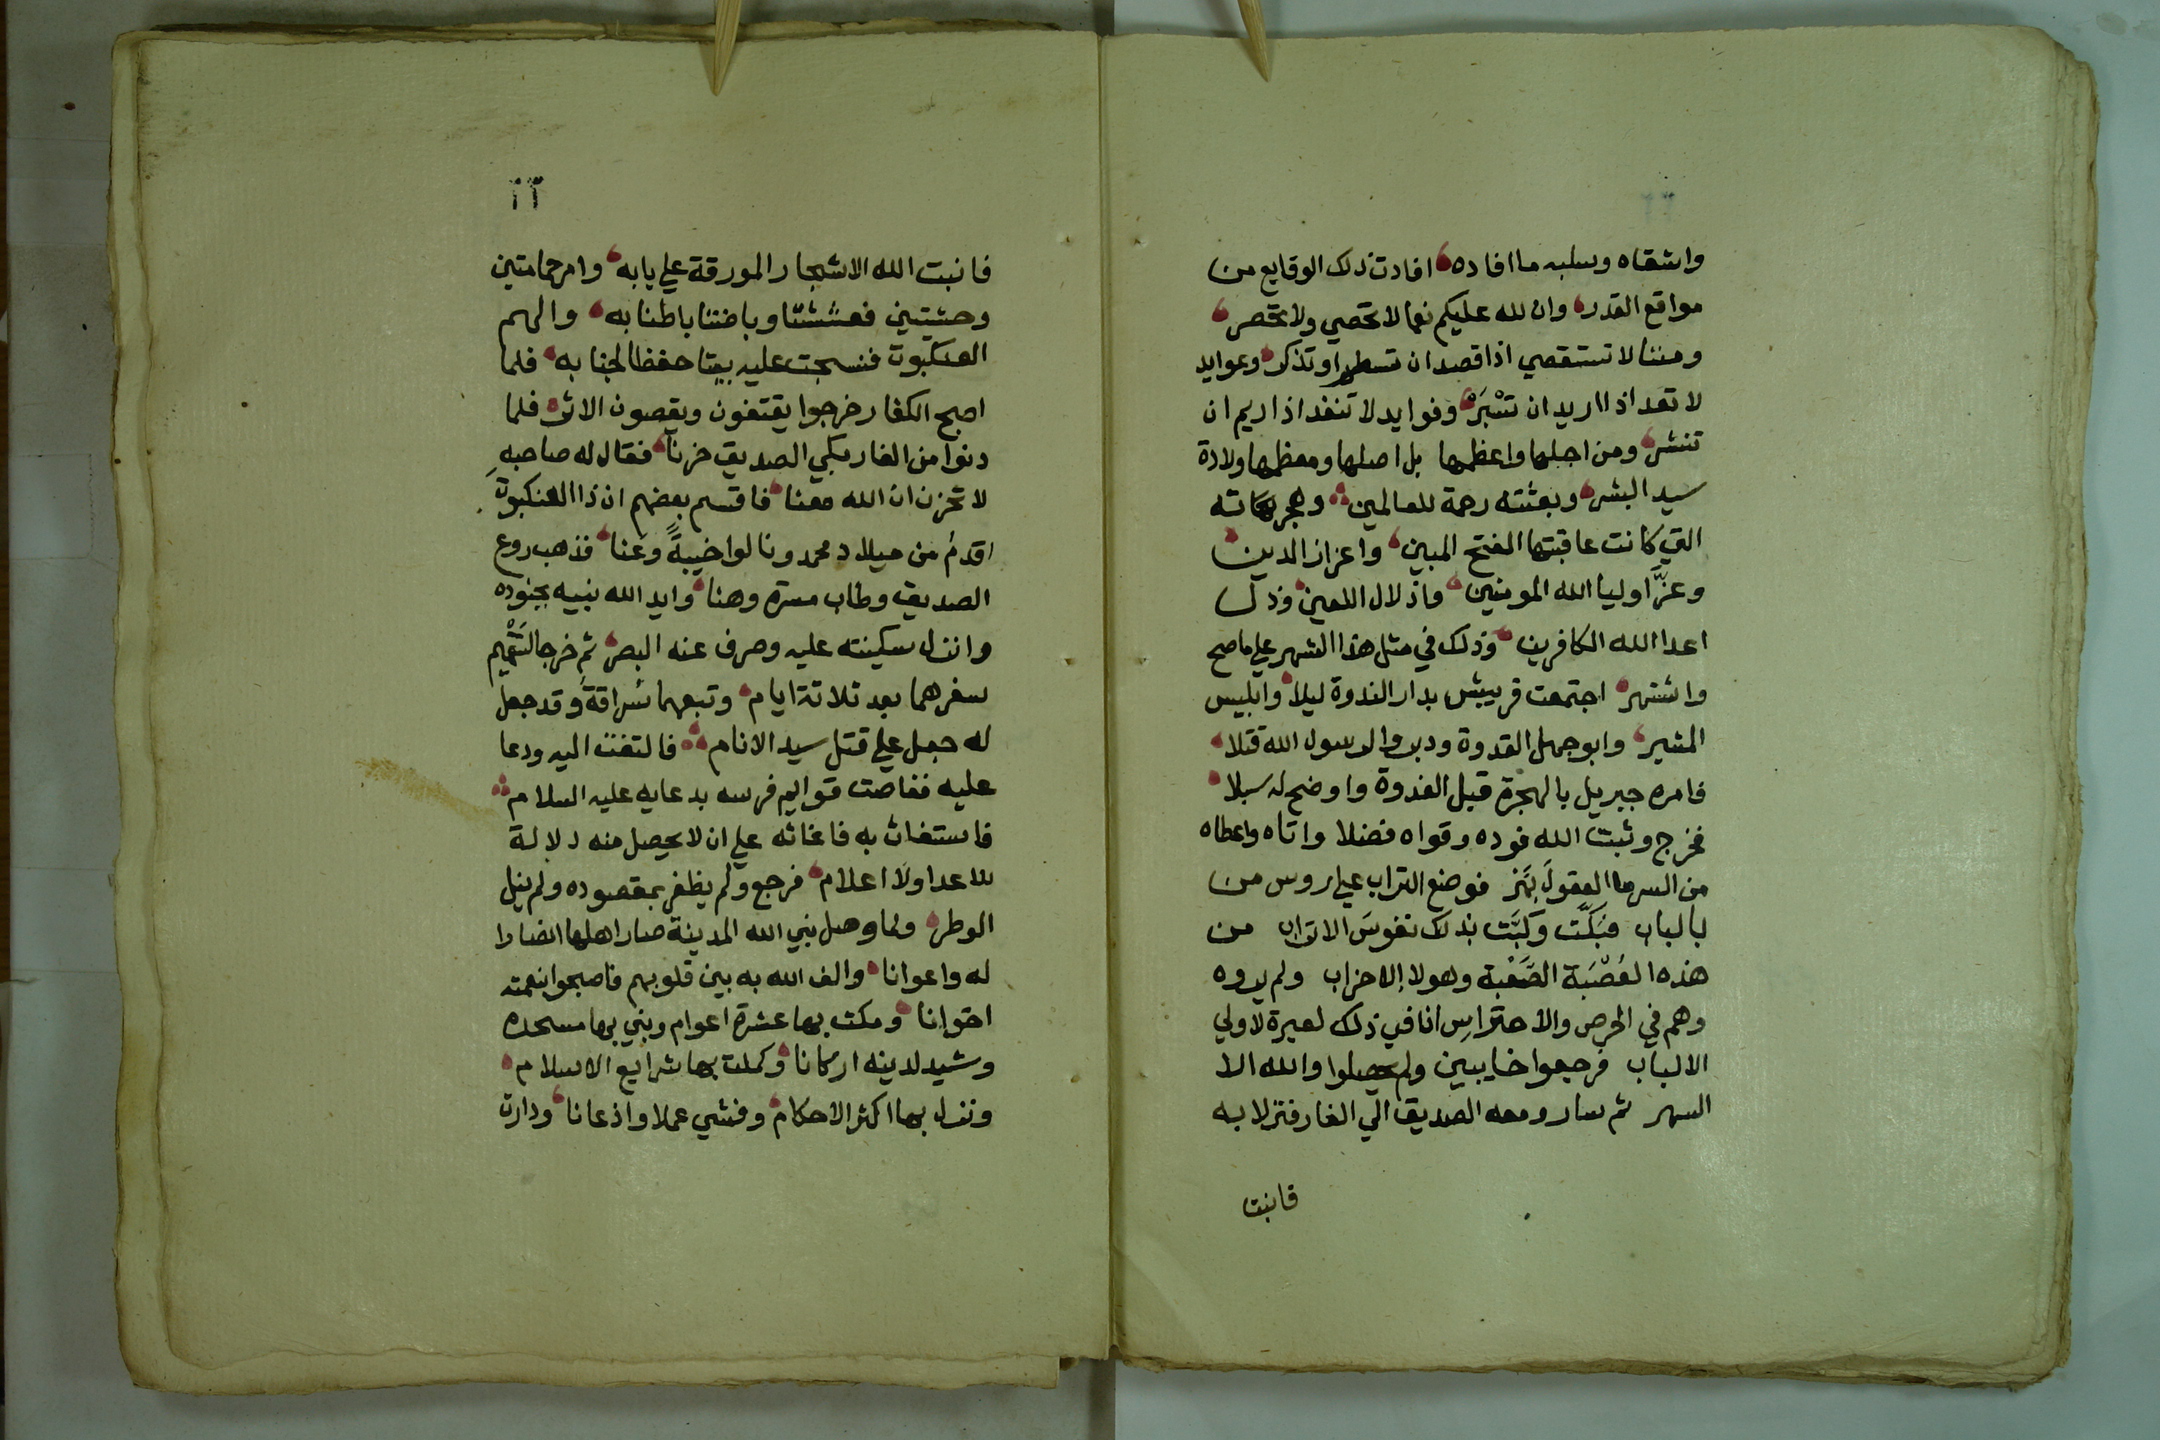 واشقاه وسلبه ما افاده افادت ذلك الوقايع من
مواقع القدر وان لله عليكم نعما لا تحصي ولا تحصر
ومننا لا تستقصي اذا قصد ان تسطر او تذكر وعوايد
لا تعد اذا اريد ان تسْبَرْ وفوايد لا تنفد اذا ريم ان
تنشر ومن اجلها واعظمها بل اصلها ومعظمها ولادة
سيد البشر وبعثته رحمة للعالمين وهجرته
التي كانت عاقبتها الفتح المبين واعزاز الدين
وعزَّ اوليا الله المومنين واذلال اللعين وذل
اعدا الله الكافرين وذلك في مثل هذا الشهر علي ما صح
واشتهر اجتمعت قريش بدار الندوة ليلا وابليس
المشير وابو جهل القدوة ودبروا لرسول الله قتلا
فامره جبريل بالهجرة قبل الغدوة واوضح له سبلا
فخرج وثبت الله فوده وقواه فضلا واتاه واعطاه
من السر ما العقولَ بَهَر فوضع التراب علي روس من
بالباب فبَكَّت وكَبَّت بذلك نفوسَ الاتراب من
هذه العُصْبَة الصَّعْبة وهولا الاحزاب ولم يروه
وهم في الحرص والاحتراسِ ان في ذلك لعبرة لاولي
الالباب فرجعوا خايبين ولم يحصلوا والله الا
السهر ثم سار ومعه الصديق الي الغار فنزلا به
فانبت
٢٢
فانبت الله الاشجار المورقة علي بابه وامر حمامتين
وحشتين فعششتا وباضتا باطنا به والهم
العنكبوت فنسجت عليه بيتا حفظا لجنابه فلما
اصبح الكفار خرجوا يقتفون ويقصون الاثر فلما
دنوا من الغار بكي الصديق حزنا فقال له صاحبه
لا تحزن ان الله معنا فاقسم بعضهم ان ذا العنكبوت
اقدمُ من ميلاد محمد ونالوا خيبةً وعَنا فذهب روع
الصديق وطاب مسرة وهنا وايد الله نبيه بجنوده
وانزل سكينته عليه وصرف عنه البصر ثم خرجا لتَتْميم
سفرهما بعد ثلاثة ايام وتبعهما سُراقة وقد جعل
له جعل علي قتل سيد الانام فالتفت اليه ودعا
عليه فغاصت قوايم فرسه بدعايه عليه السلام
فاستغاث به فاغاثه علي ان لا يحصل منه دلالة
للاعدا ولا اعلام فرجع ولم يظفر بمقصوده ولم ينل
الوطر ولما وصل نبي الله المدينة صار اهلها انصارا
له واعوانا والف الله به بين قلوبهم فاصبحوا بنعمته
اخوانا ومكث بها عشرة اعوام وبني بها مسجده
وشيد لدينه اركانا وكملت بها شرايع الاسلام
ونزل بها اكثر الاحكام وفشي عملا واذعانا ودارت